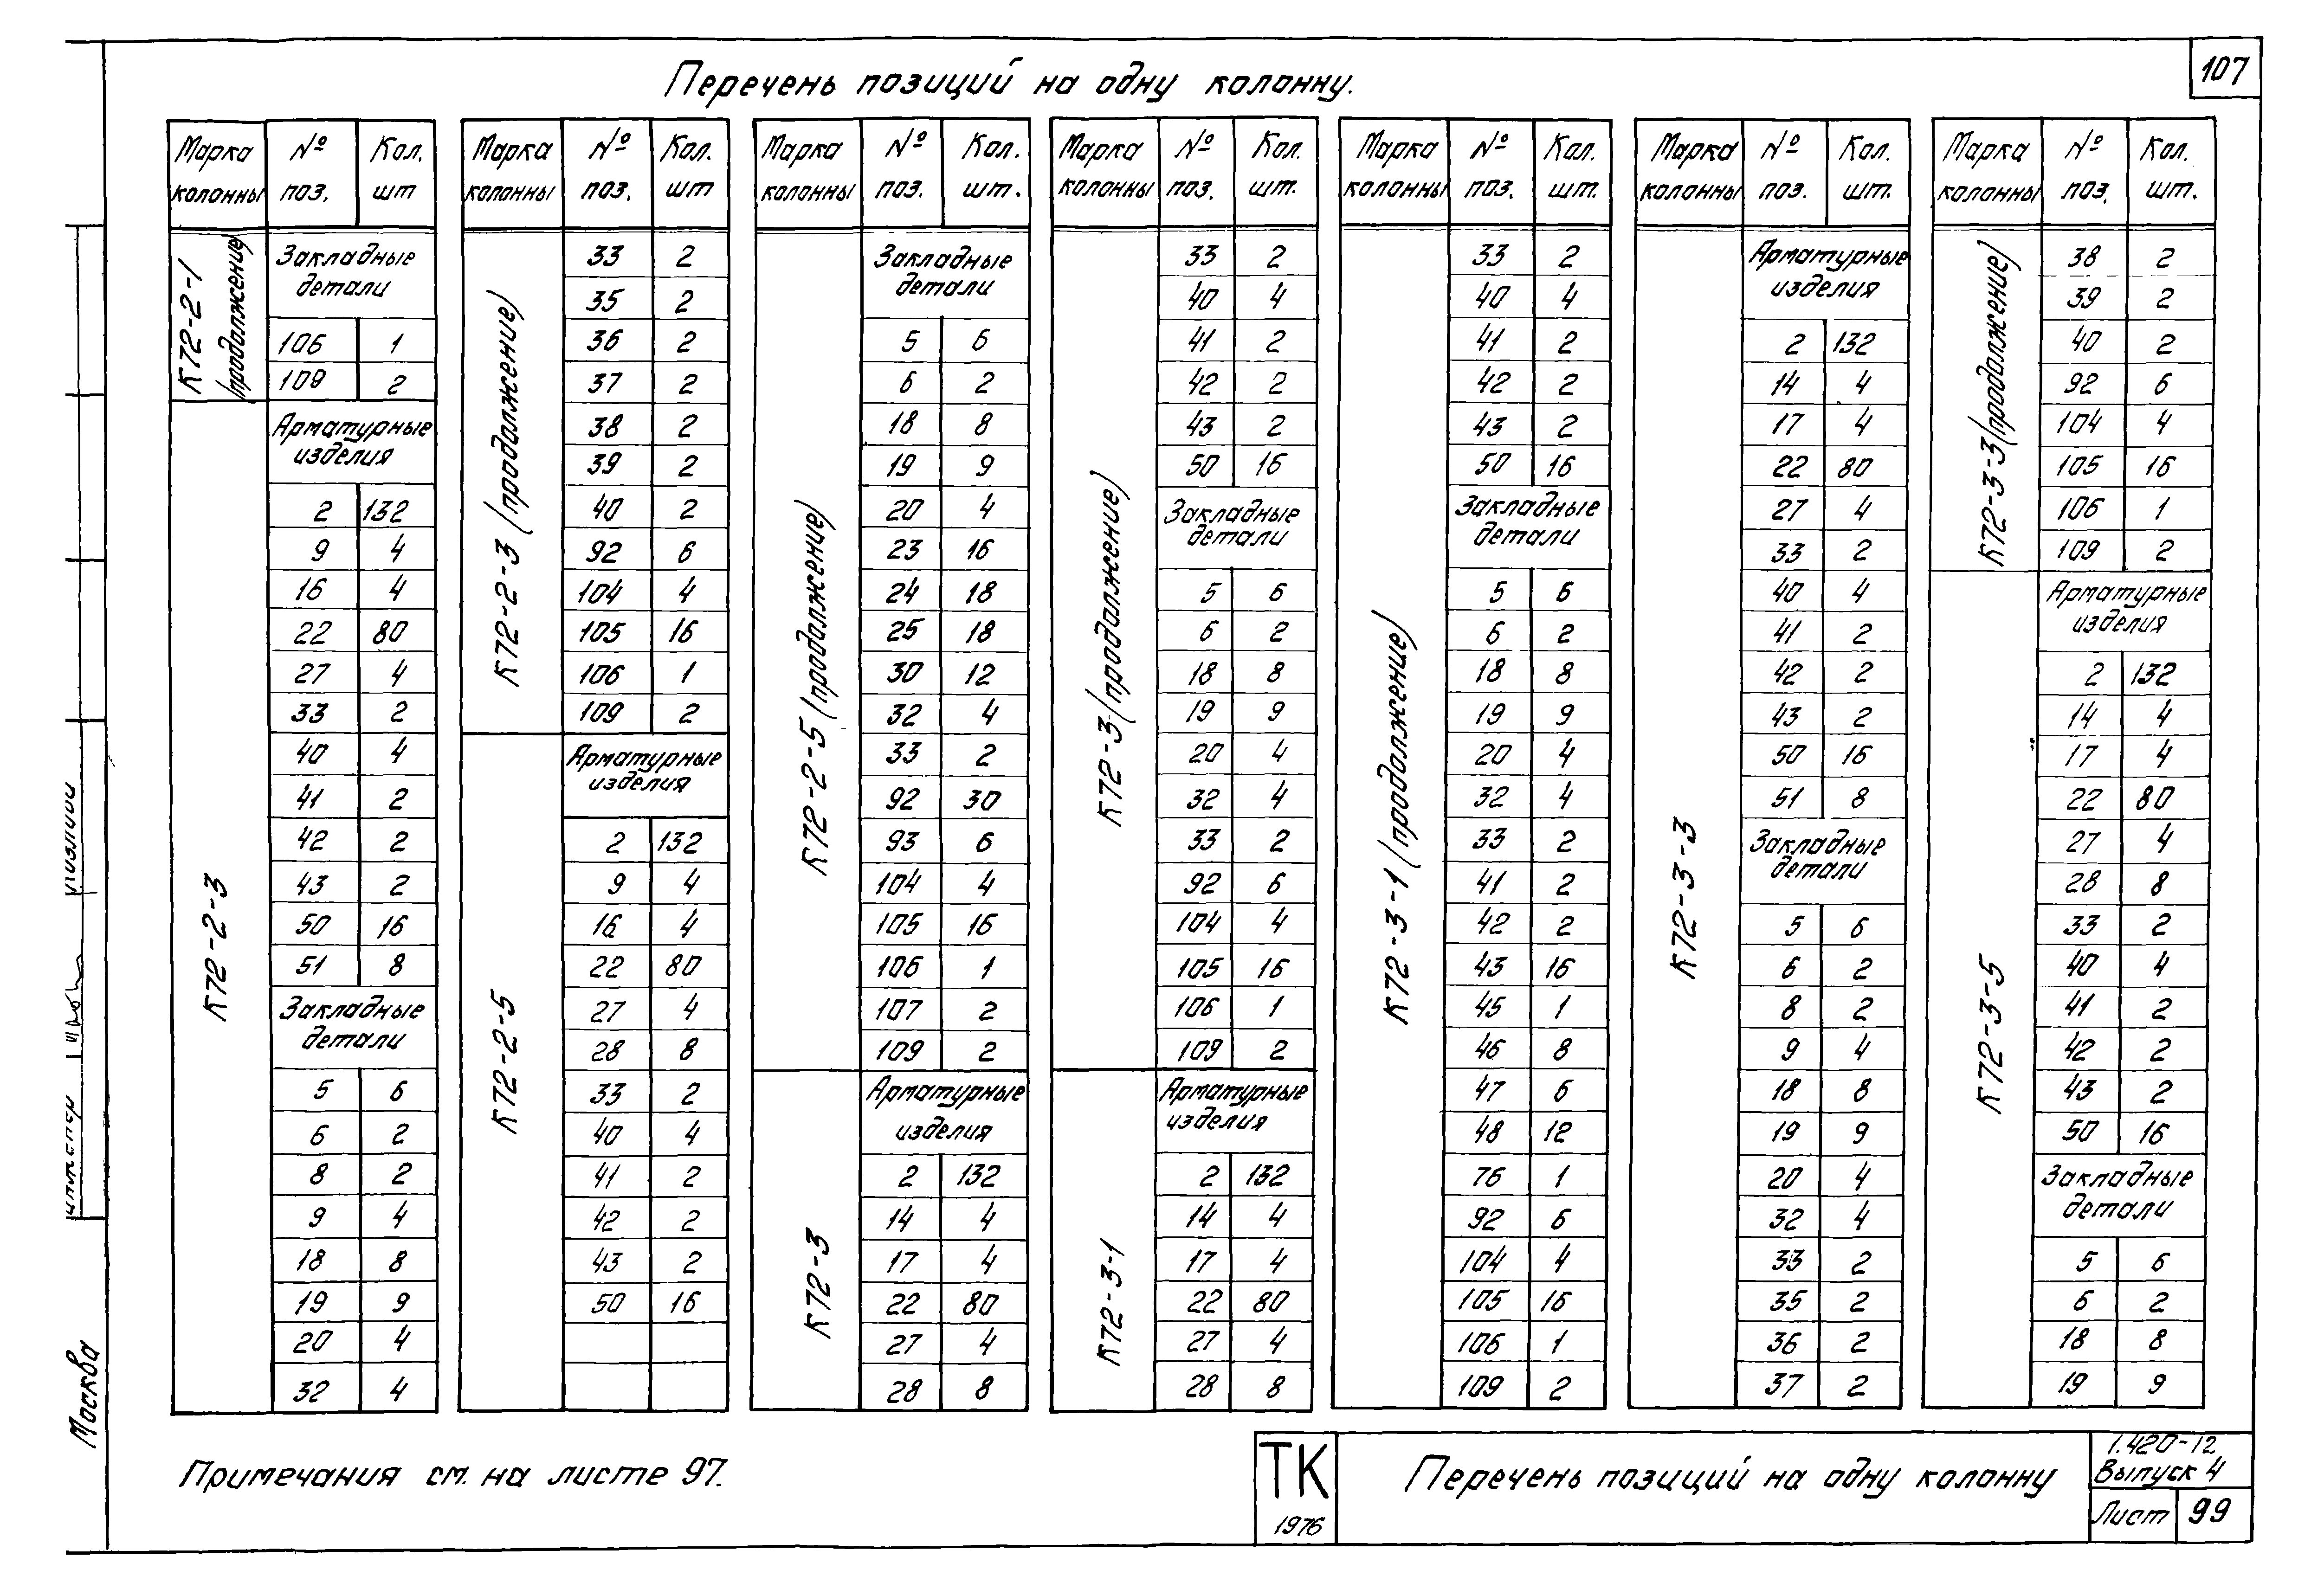 107
Перечень позиций на одну колонну.
Марка колонны | № поз. | Кол. шт
К72-2-1 (продолжение)
Закладные детали
106 1
109 2
К72-2-3
Арматурные изделия
2 132
9 4
16 4
22 80
27 4
33 2
40 4
41 2
42 2
43 2
50 16
51 8
Закладные детали
5 6
6 2
8 2
9 4
18 8
19 9
20 4
32 4
Марка колонны | № поз. | Кол. шт
К72-2-3 (продолжение)
33 2
35 2
36 2
37 2
38 2
39 2
40 2
92 6
104 4
105 16
106 1
109 2
К72-2-5
Арматурные изделия
2 132
9 4
16 4
22 80
27 4
28 8
33 2
40 4
41 2
42 2
43 2
50 16
Марка колонны | № поз. | Кол. шт.
К72-2-5 (продолжение)
Закладные детали
5 6
6 2
18 8
19 9
20 4
23 16
24 18
25 18
30 12
32 4
33 2
92 30
93 6
104 4
105 16
106 1
107 2
109 2
К72-3
Арматурные изделия
2 132
14 4
17 4
22 80
27 4
28 8
Марка колонны | № поз. | Кол. шт.
К72-3 (продолжение)
33 2
40 4
41 2
42 2
43 2
50 16
Закладные детали
5 6
6 2
18 8
19 9
20 4
32 4
33 2
92 6
104 4
105 16
106 1
109 2
К72-3-1
Арматурные изделия
2 132
14 4
17 4
22 80
27 4
28 8
Марка колонны | № поз. | Кол. шт.
К72-3-1 (продолжение)
33 2
40 4
41 2
42 2
43 2
50 16
Закладные детали
5 6
6 2
18 8
19 9
20 4
32 4
33 2
41 2
42 2
43 16
45 1
46 8
47 6
48 12
76 1
92 6
104 4
105 16
106 1
109 2
Марка колонны | № поз. | Кол. шт.
К72-3-3
Арматурные изделия
2 132
14 4
17 4
22 80
27 4
33 2
40 4
41 2
42 2
43 2
50 16
51 8
Закладные детали
5 6
6 2
8 2
9 4
18 8
19 9
20 4
32 4
33 2
35 2
36 2
37 2
Марка колонны | № поз. | Кол. шт.
К72-3-3 (продолжение)
38 2
39 2
40 2
92 6
104 4
105 16
106 1
109 2
К72-3-5
Арматурные изделия
2 132
14 4
17 4
22 80
27 4
28 8
33 2
40 4
41 2
42 2
43 2
50 16
Закладные детали
5 6
6 2
18 8
19 9
Москва
Примечания см. на листе 97.
ТК
1976
Перечень позиций на одну колонну
1.420-12
Выпуск 4
Лист 99